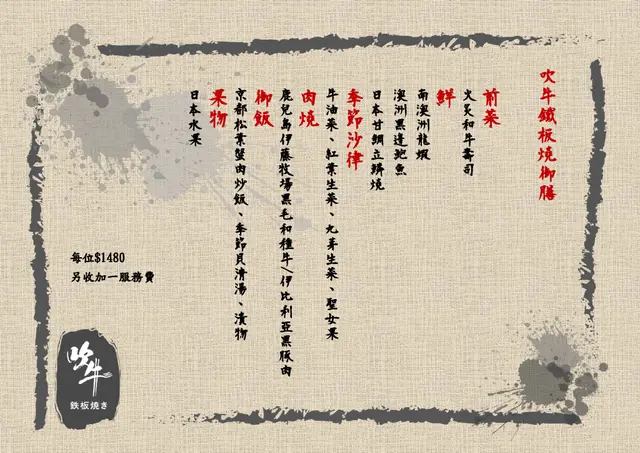 吹牛鐵板燒御膳
前菜
火炙和牛壽司
鮮
南澳洲龍蝦
澳洲黑邊鮑魚
日本甘鯛立鱗燒
季節沙律
牛油菜、紅葉生菜、九芽生菜、聖女果
肉燒
鹿兒島伊藤牧場黑毛和種牛/伊比利亞黑豚肉
御飯
京都松葉蟹肉炒飯、季節貝清湯、漬物
果物
日本水果
每位$1480
另收加一服務費
吹牛
鉄板焼き